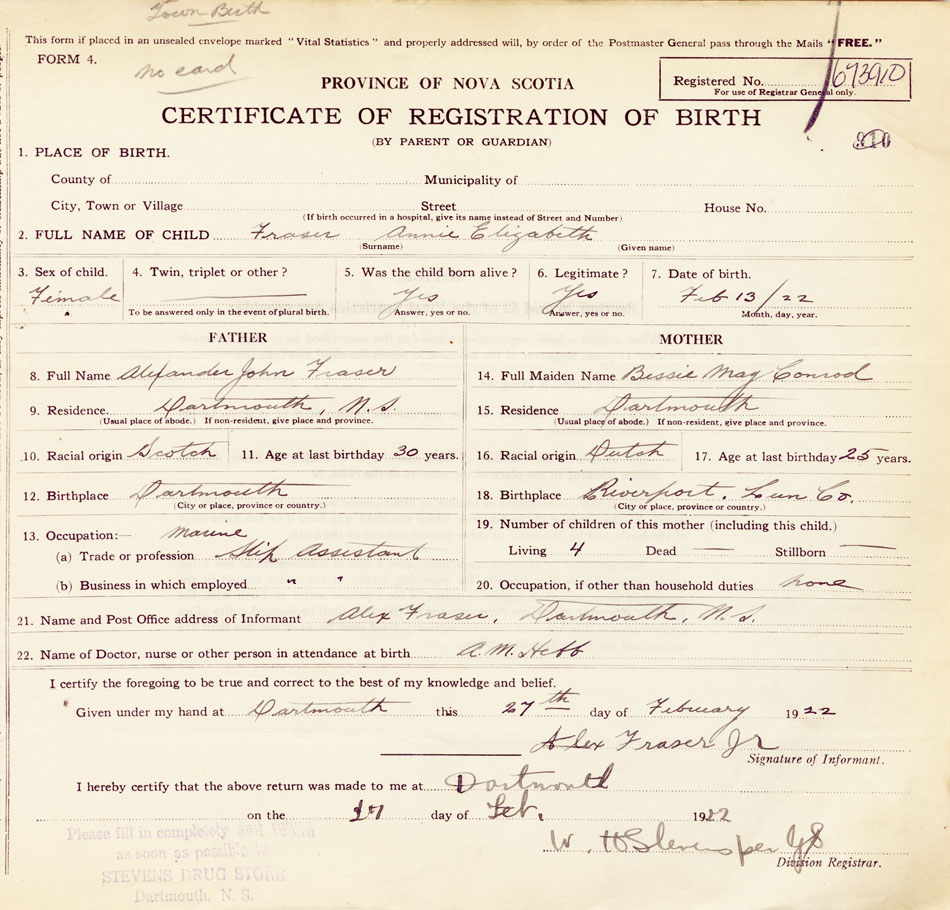 Town Birth
This form if placed in an unsealed envelope marked "Vital Statistics" and properly addressed will, by order of the Postmaster General pass through the Mails "FREE."
FORM 4.
no card
PROVINCE OF NOVA SCOTIA
Registered No. 673910
For use of Registrar General only.
CERTIFICATE OF REGISTRATION OF BIRTH
(BY PARENT OR GUARDIAN)
910
1. PLACE OF BIRTH.
County of Municipality of
City, Town or Village Street House No.
(If birth occurred in a hospital, give its name instead of Street and Number)
2. FULL NAME OF CHILD Fraser Annie Elizabeth
(Surname) (Given name)
3. Sex of child. 4. Twin, triplet or other? 5. Was the child born alive? 6. Legitimate? 7. Date of birth.
Female Yes Yes Feb 13/22
To be answered only in the event of plural birth. Answer, yes or no. Answer, yes or no. Month, day, year.
FATHER MOTHER
8. Full Name Alexander John Fraser 14. Full Maiden Name Bessie May Conrod
9. Residence. Dartmouth, N.S. 15. Residence Dartmouth
(Usual place of abode.) If non-resident, give place and province. (Usual place of abode.) If non-resident, give place and province.
10. Racial origin Scotch 11. Age at last birthday 30 years. 16. Racial origin Dutch 17. Age at last birthday 25 years.
12. Birthplace Dartmouth 18. Birthplace Riverport, Lun Co.
(City or place, province or country.) (City or place, province or country.)
13. Occupation:— Marine 19. Number of children of this mother (including this child.)
(a) Trade or profession Slip Assistant Living 4 Dead — Stillborn —
(b) Business in which employed " " 20. Occupation, if other than household duties none
21. Name and Post Office address of Informant Alex Fraser, Dartmouth, N.S.
22. Name of Doctor, nurse or other person in attendance at birth A.M. Hebb
I certify the foregoing to be true and correct to the best of my knowledge and belief.
Given under my hand at Dartmouth this 27th day of February 1922
Alex Fraser Jr
Signature of Informant.
I hereby certify that the above return was made to me at Dartmouth
on the day of Feb. 1922
W. H Stevens per
Division Registrar.
Please fill in completely
as soon as possible to
STEVENS DRUG STORE
Dartmouth, N. S.